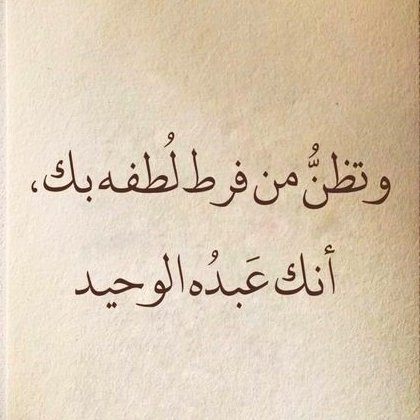 وتظنُّ من فرط لُطفه بك،
أنك عَبدُه الوحيد